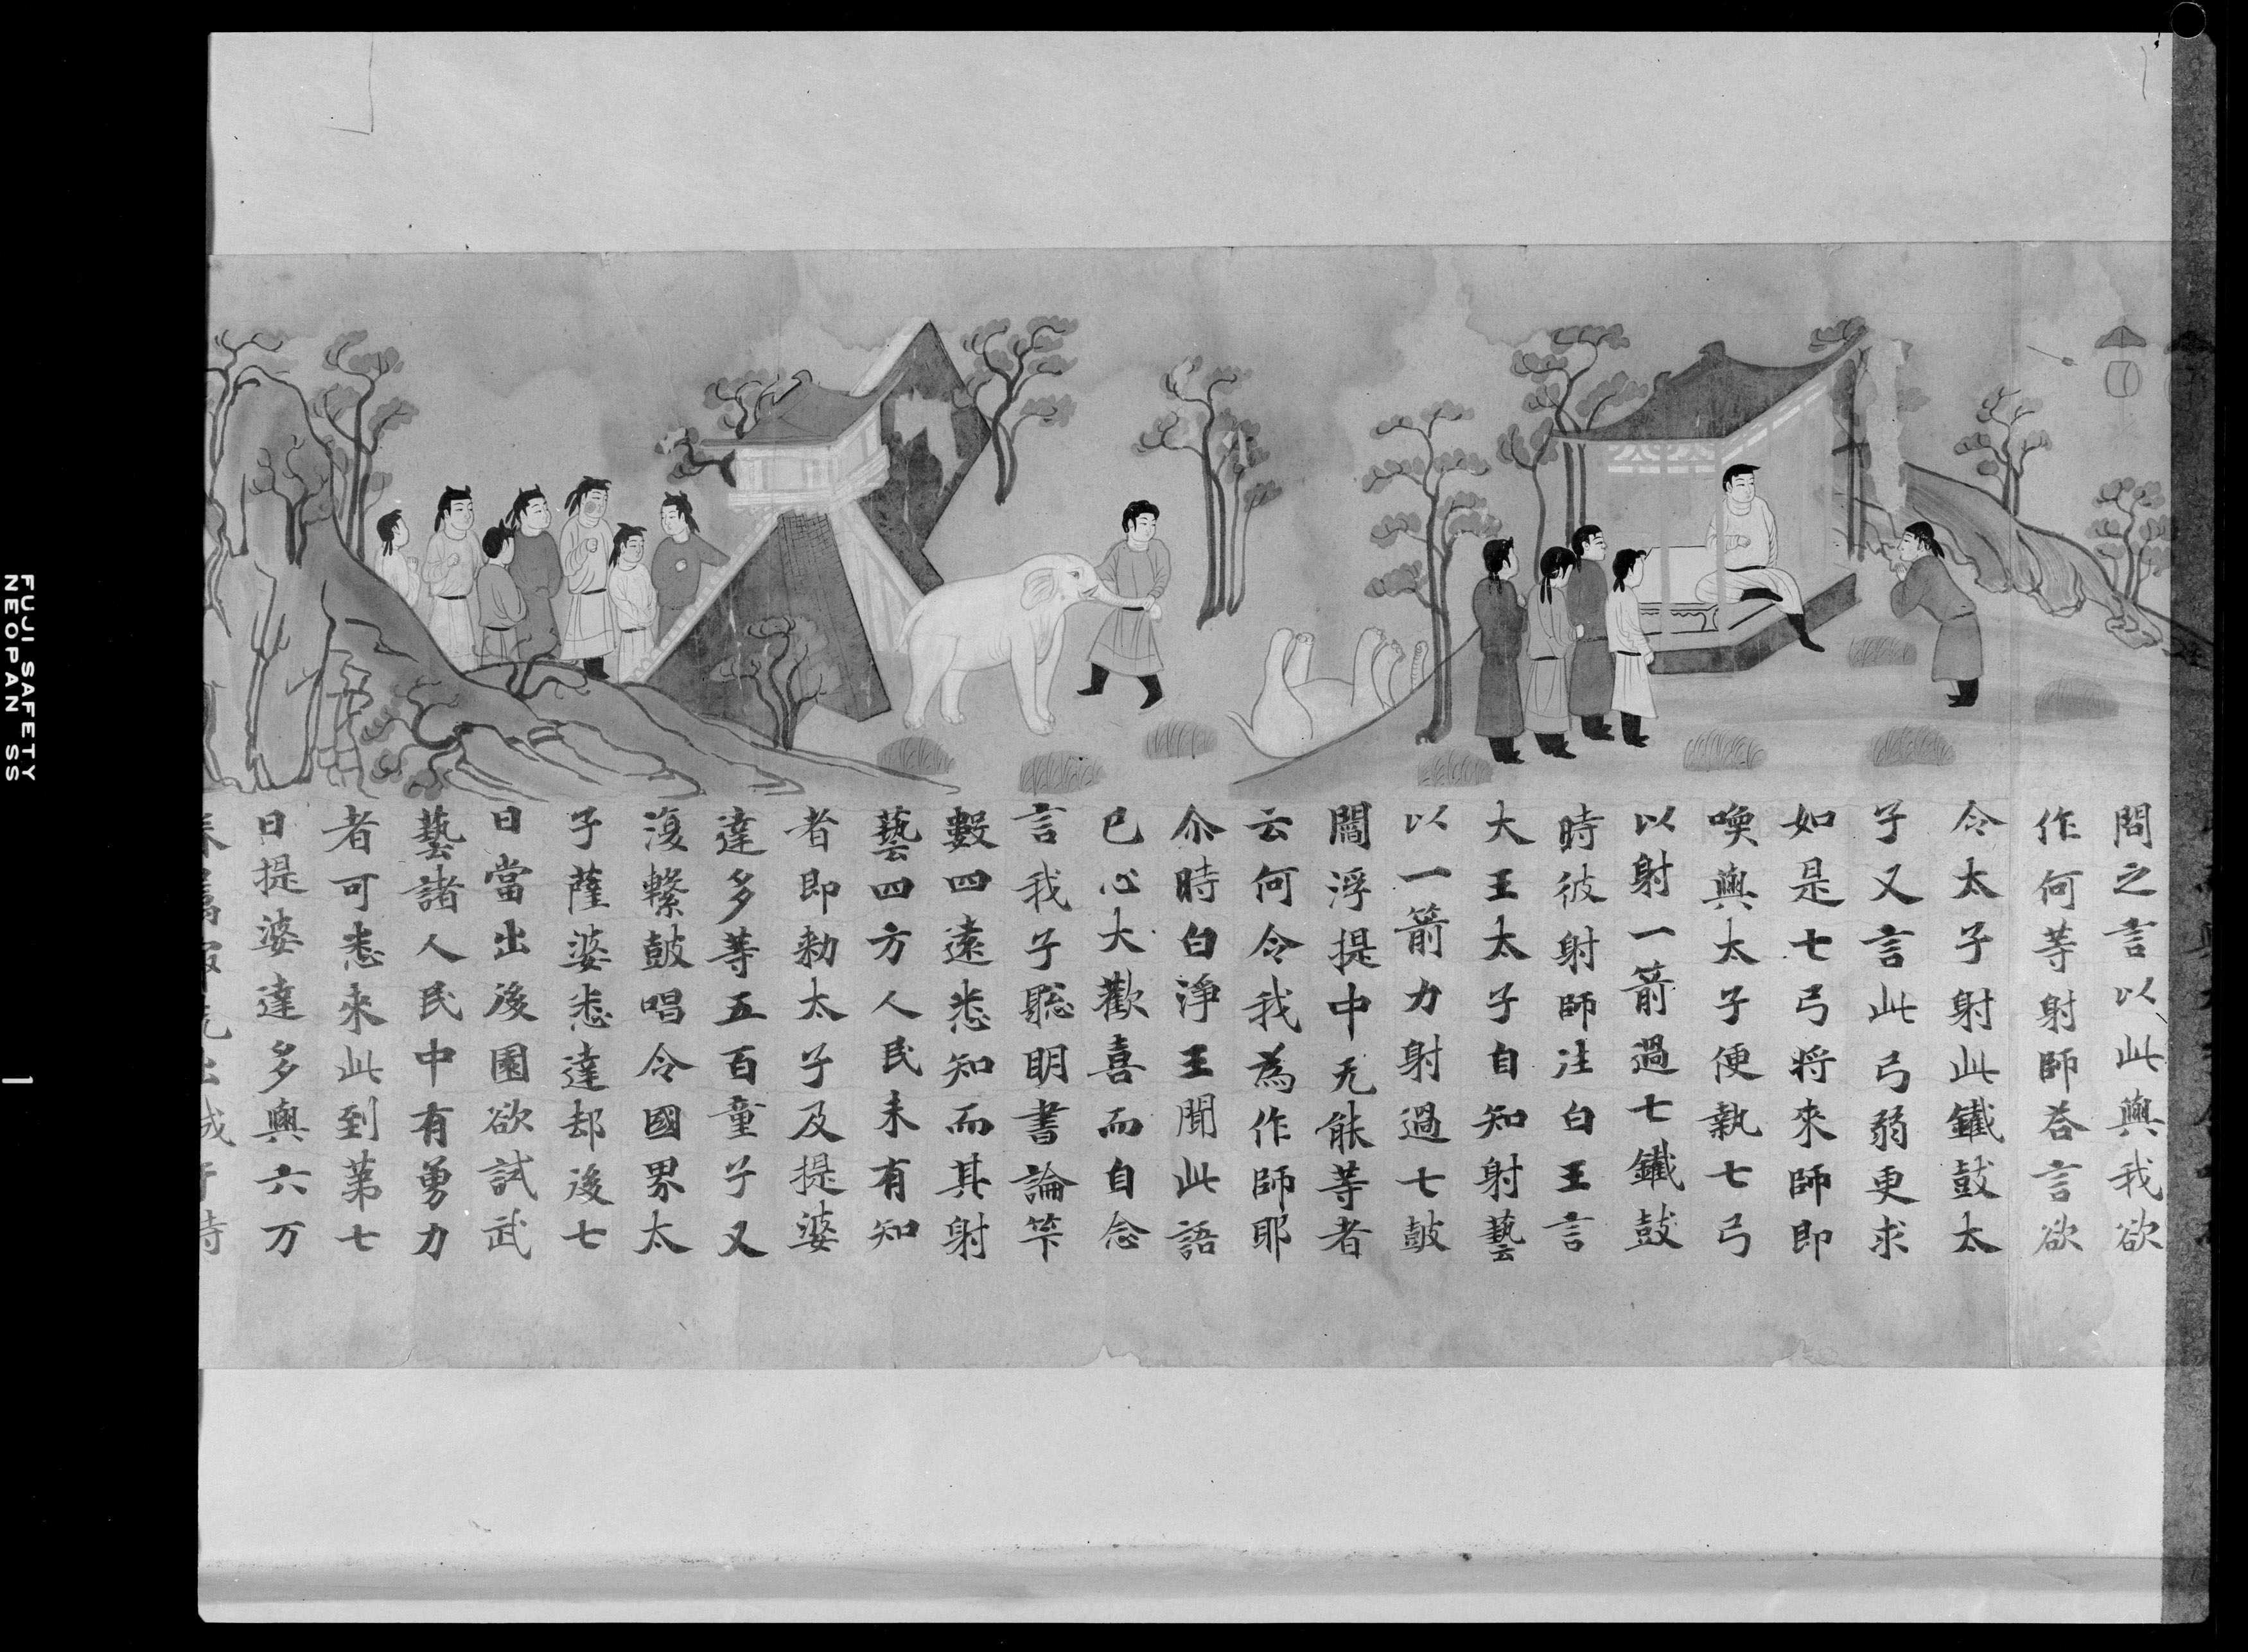 問之言以此與我欲
作何等射師荅言欲
令太子射此鐵鼓太
子又言此弓弱更求
如是七弓将來師即
喚與太子便執七弓
以射一箭過七鐵鼓
時彼射師往白王言
大王太子自知射藝
以一箭力射過七鼓
閻浮提中无能等者
云何令我為作師耶
尒時白淨王聞此語
已心大歡喜而自念
言我子聡明書論笇
數四遠悉知而其射
藝四方人民未有知
者即勑太子及提婆
達多等五百童子又
復擊鼓唱令國界太
子薩婆悉達却後七
日當出後園欲試武
藝諸人民中有勇力
者可悉來此到第七
日提婆達多與六万
FUJI SAFETY
NEOPAN SS
1